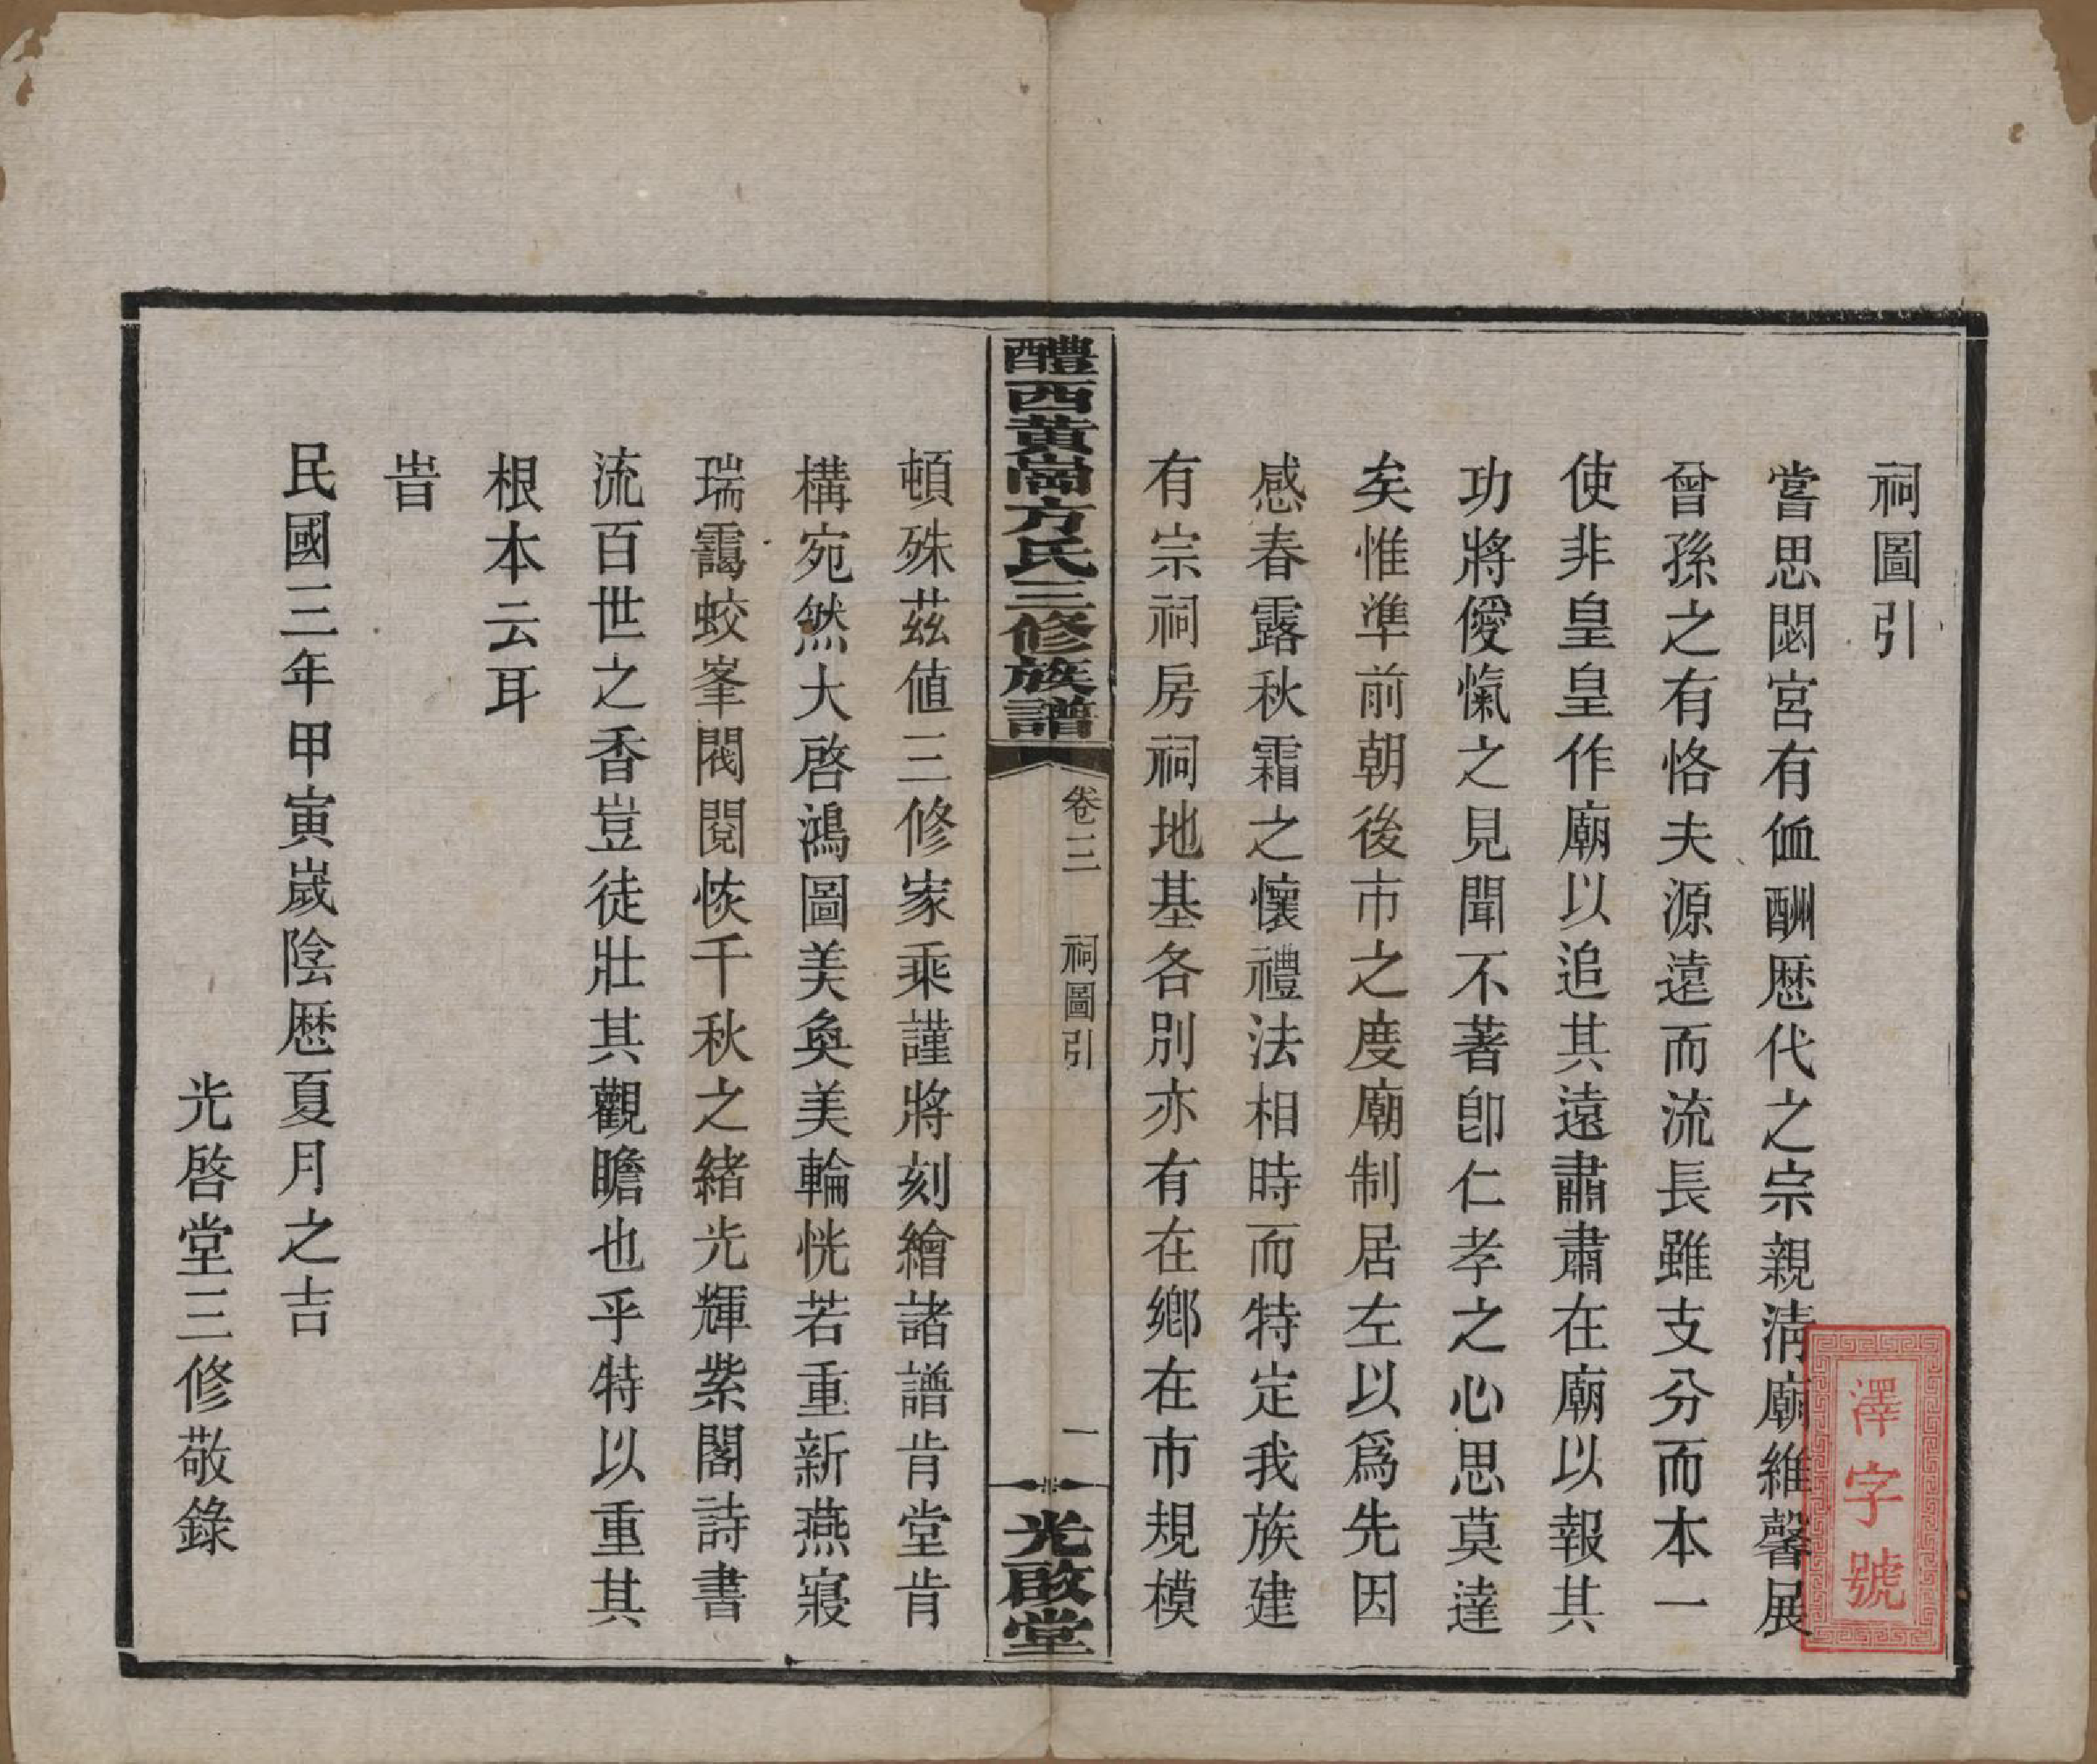 祠圖引
嘗思閟宮有侐酬歷代之宗親清廟維馨展
曾孫之有恪夫源遠而流長雖支分而本一
使非皇皇作廟以追其遠肅肅在廟以報其
功將僾愾之見聞不著卽仁孝之心思莫達
矣惟準前朝後市之度廟制居左以爲先因
感春露秋霜之懷禮法相時而特定我族建
有宗祠房祠地基各別亦有在鄉在市規模
醴西黃崗方氏三修族譜
卷三 祠圖引
一
光啟堂
頓殊茲値三修家乘謹將刻繪諸譜肯堂肯
構宛然大啓鴻圖美奐美輪恍若重新燕寢
瑞靄蛟峯閥閱恢千秋之緒光輝紫閣詩書
流百世之香豈徒壯其觀瞻也乎特以重其
根本云耳
旹
民國三年甲寅嵗陰歷夏月之吉
光啓堂三修敬錄
澤字號